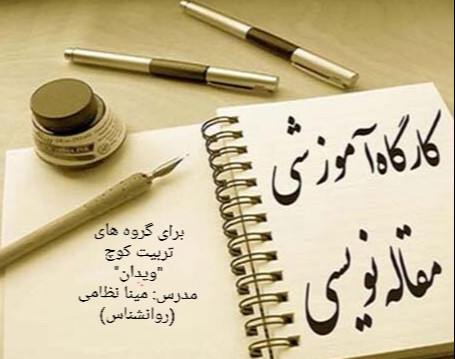 کارگاه آموزشی
مقاله نویسی
برای گروه های
تربیت کوچ
"ویدان"
مدرس: مینا نظامی
(روانشناس)